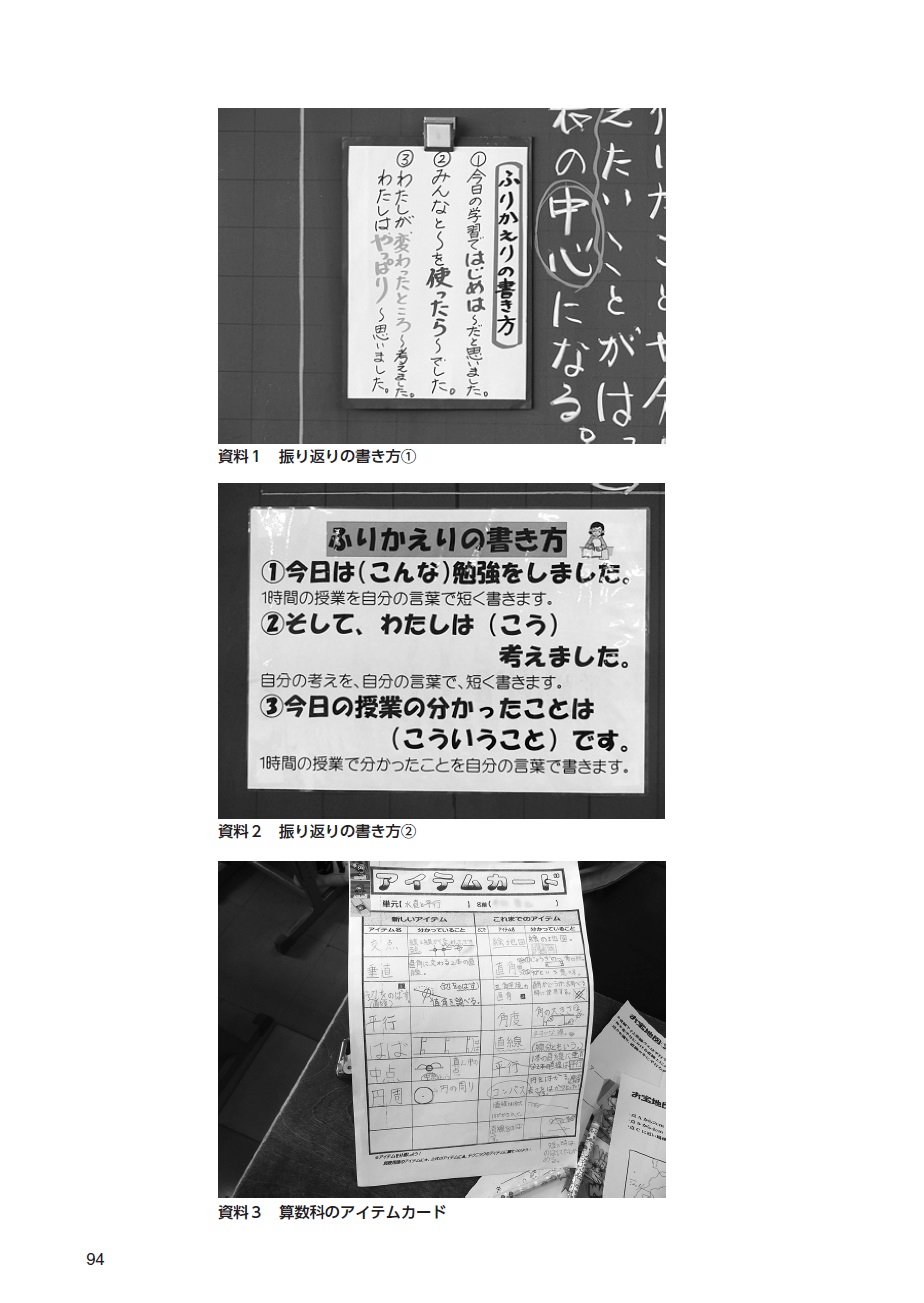 行いたことや今
えたいことがは
衣の中心になる。
ふりかえりの書き方
①今日の学習ではじめは〜だと思いました。
②みんなと〜を使ったら〜でした。
③わたしが変わったところ〜考えました。
わたしはやっぱり〜思いました。
資料1 振り返りの書き方①
ふりかえりの書き方
①今日は(こんな)勉強をしました。
1時間の授業を自分の言葉で短く書きます。
②そして、わたしは(こう)
考えました。
自分の考えを、自分の言葉で、短く書きます。
③今日の授業の分かったことは
(こういうこと)です。
1時間の授業で分かったことを自分の言葉で書きます。
資料2 振り返りの書き方②
アイテムカード
単元【水直と平行】 名前( )
新しいアイテム これまでのアイテム
アイテム名 分かっていること アイテム名 分かっていること
交点 絵地図 絵の地図。
垂直 直角に交わる2本の直線。 直角
切をのばす(直線) 直角を調べる。
平行 角度 角の大きさ
はば 直線
中点 平行
円周 円の周り コンパス
お宝地図
お宝地図
資料3 算数科のアイテムカード
94